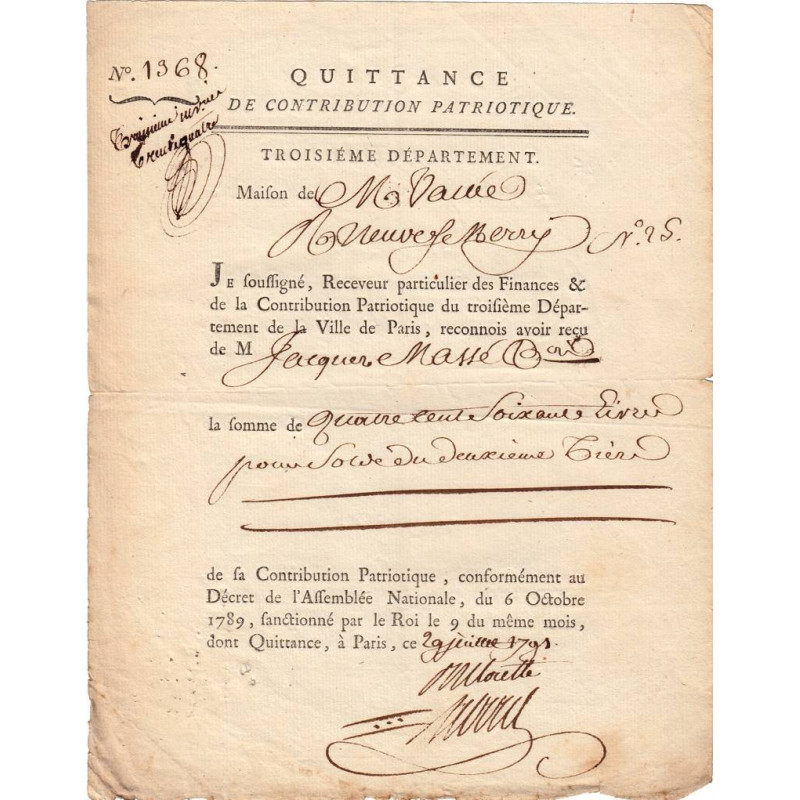 N°. 1368.
QUITTANCE
DE CONTRIBUTION PATRIOTIQUE.
Troisième
trente quatre
TROISIÉME DÉPARTEMENT.
Maison de M
R Neuve St Merry N° 25.
JE soussigné, Receveur particulier des Finances &
de la Contribution Patriotique du troisième Dépar-
tement de la Ville de Paris, reconnois avoir reçu
de M Jacques Massé
la somme de quatre cent Soixante Livres
pour Solde du deuxième Tiers
de sa Contribution Patriotique, conformément au
Décret de l'Assemblée Nationale, du 6 Octobre
1789, sanctionné par le Roi le 9 du même mois,
dont Quittance, à Paris, ce 29 juillet 1791